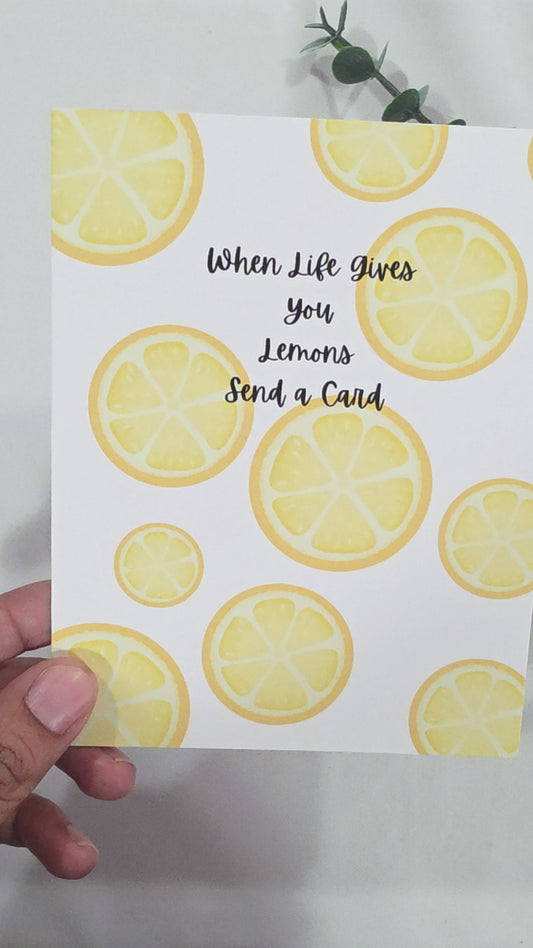 When Life Gives
You
Lemons
Send a Card